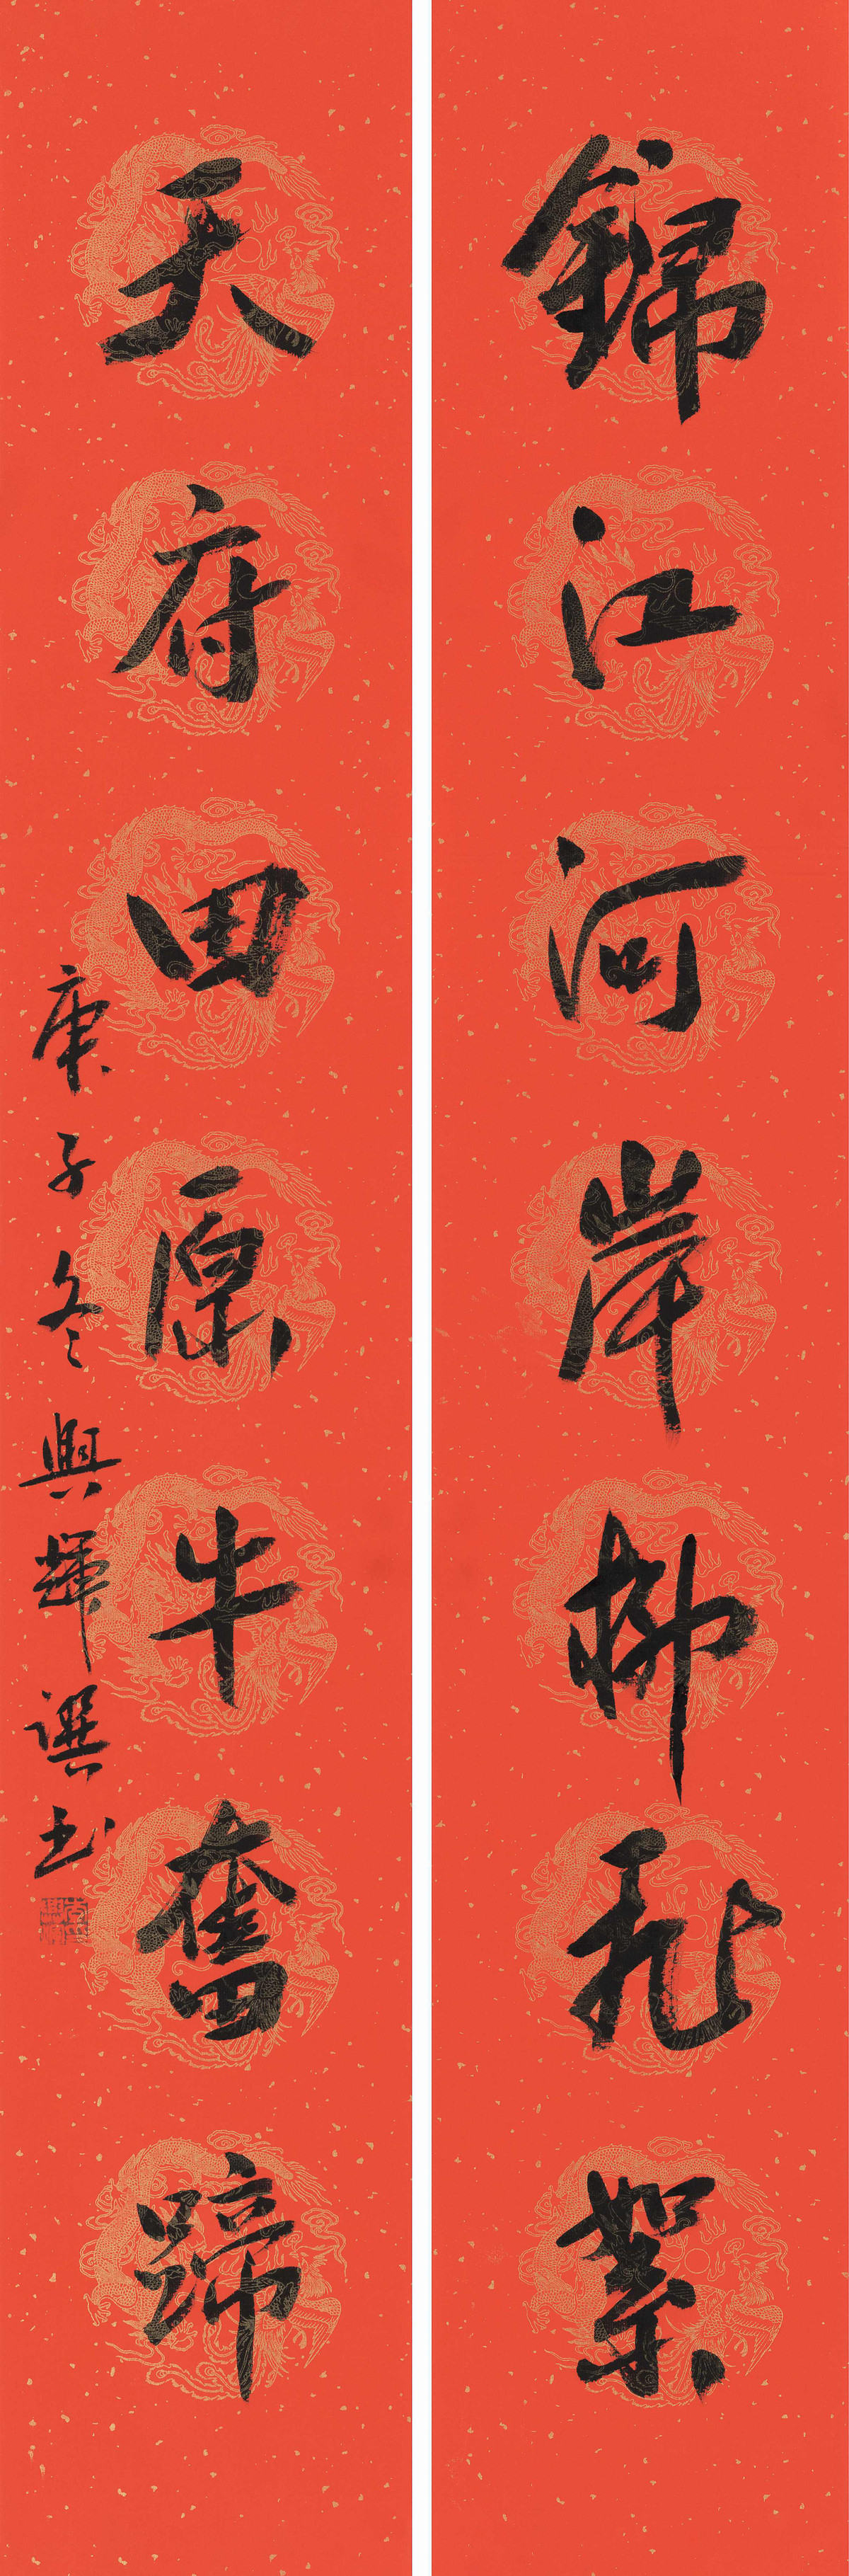 錦江河岸柳飛絮
天府田原牛奮蹄
庚子冬興輝選書